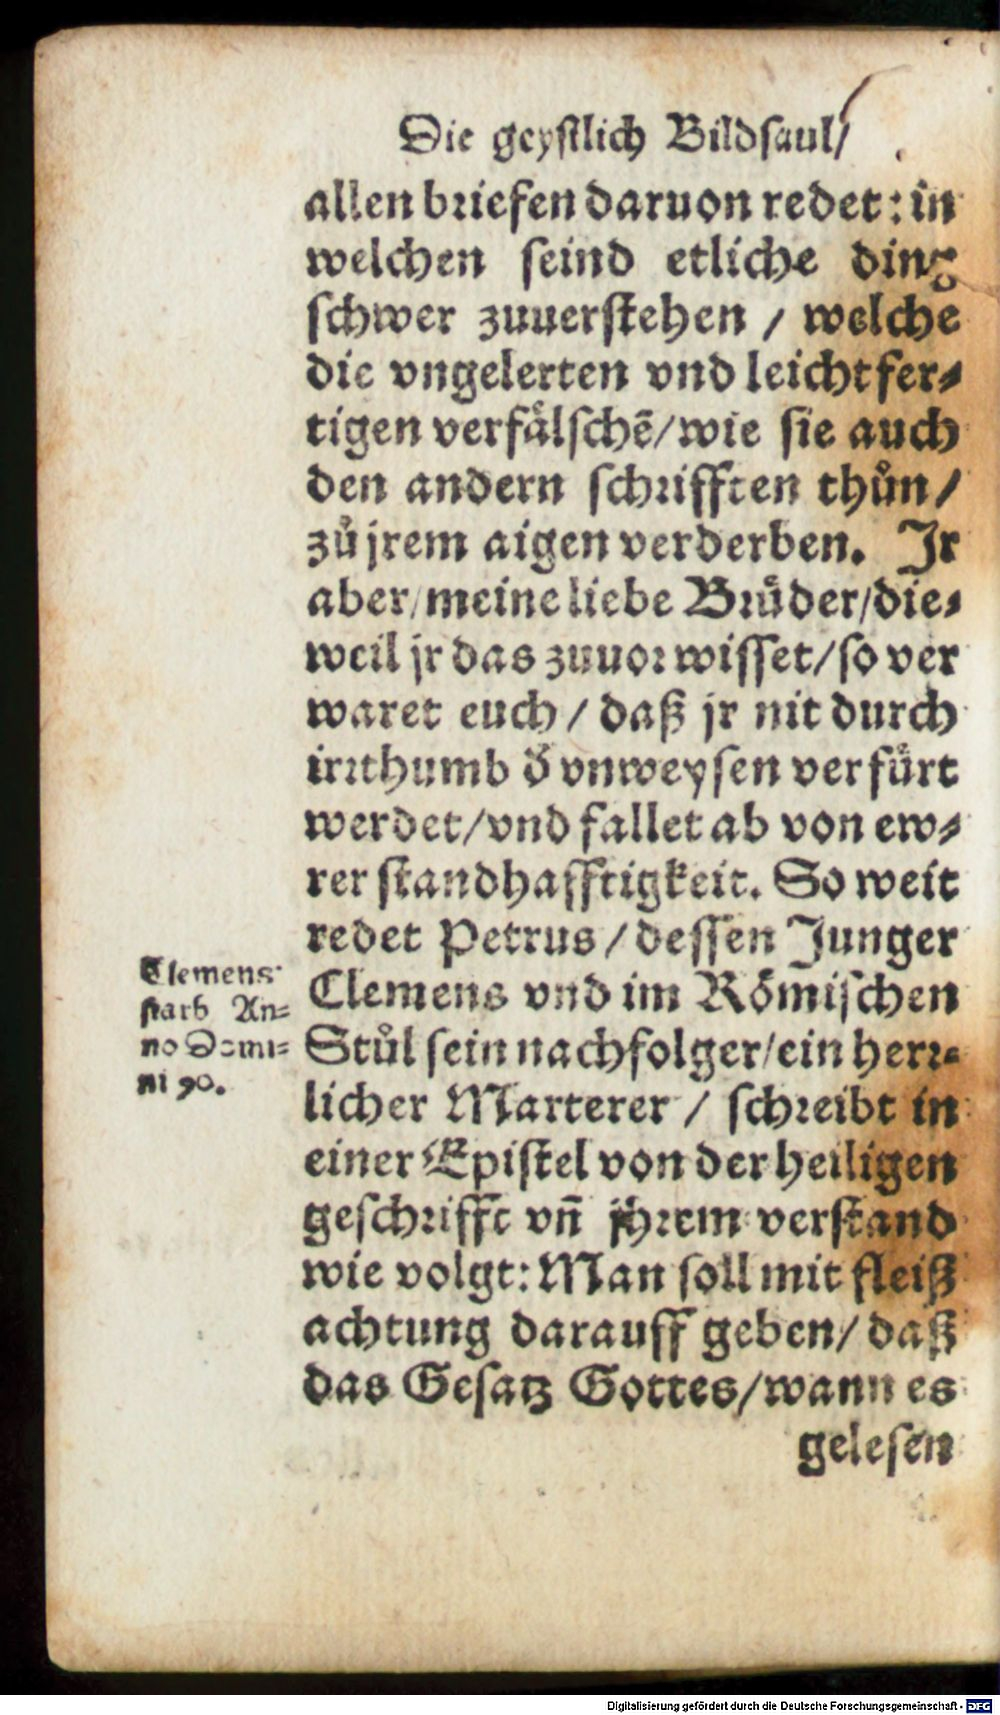 Die geystlich Bildsaul/
allen briefen daruon redet: in
welchen seind etliche ding
schwer zuuerstehen / welche
die vngelerten vnd leichtfer⸗
tigen verfaͤlschē/wie sie auch
den andern schrifften thuͦn/
zuͦ jrem aigen verderben. Jr
aber/meine liebe Bruͤder/die⸗
weil jr das zuuor wisset/so ver
waret euch / daß jr nit durch
irrthumb đ vnweysen verfuͤrt
werdet/vnd fallet ab von ew⸗
rer standhafftigkeit. So weit
redet Petrus / dessen Junger
Clemens vnd im Roͤmischen
Stuͦl sein nachfolger/ein herr⸗
licher Marterer / schreibt in
einer Epistel von der heiligen
geschrifft vn̄ jhrem verstand
wie volgt: Man soll mit fleiß
achtung darauff geben/ daß
das Gesatz Gottes/wann es
gelesen
Clemens
starb An⸗
no Domi⸗
ni 90.
Digitalisierung gefördert durch die Deutsche Forschungsgemeinschaft - DFG